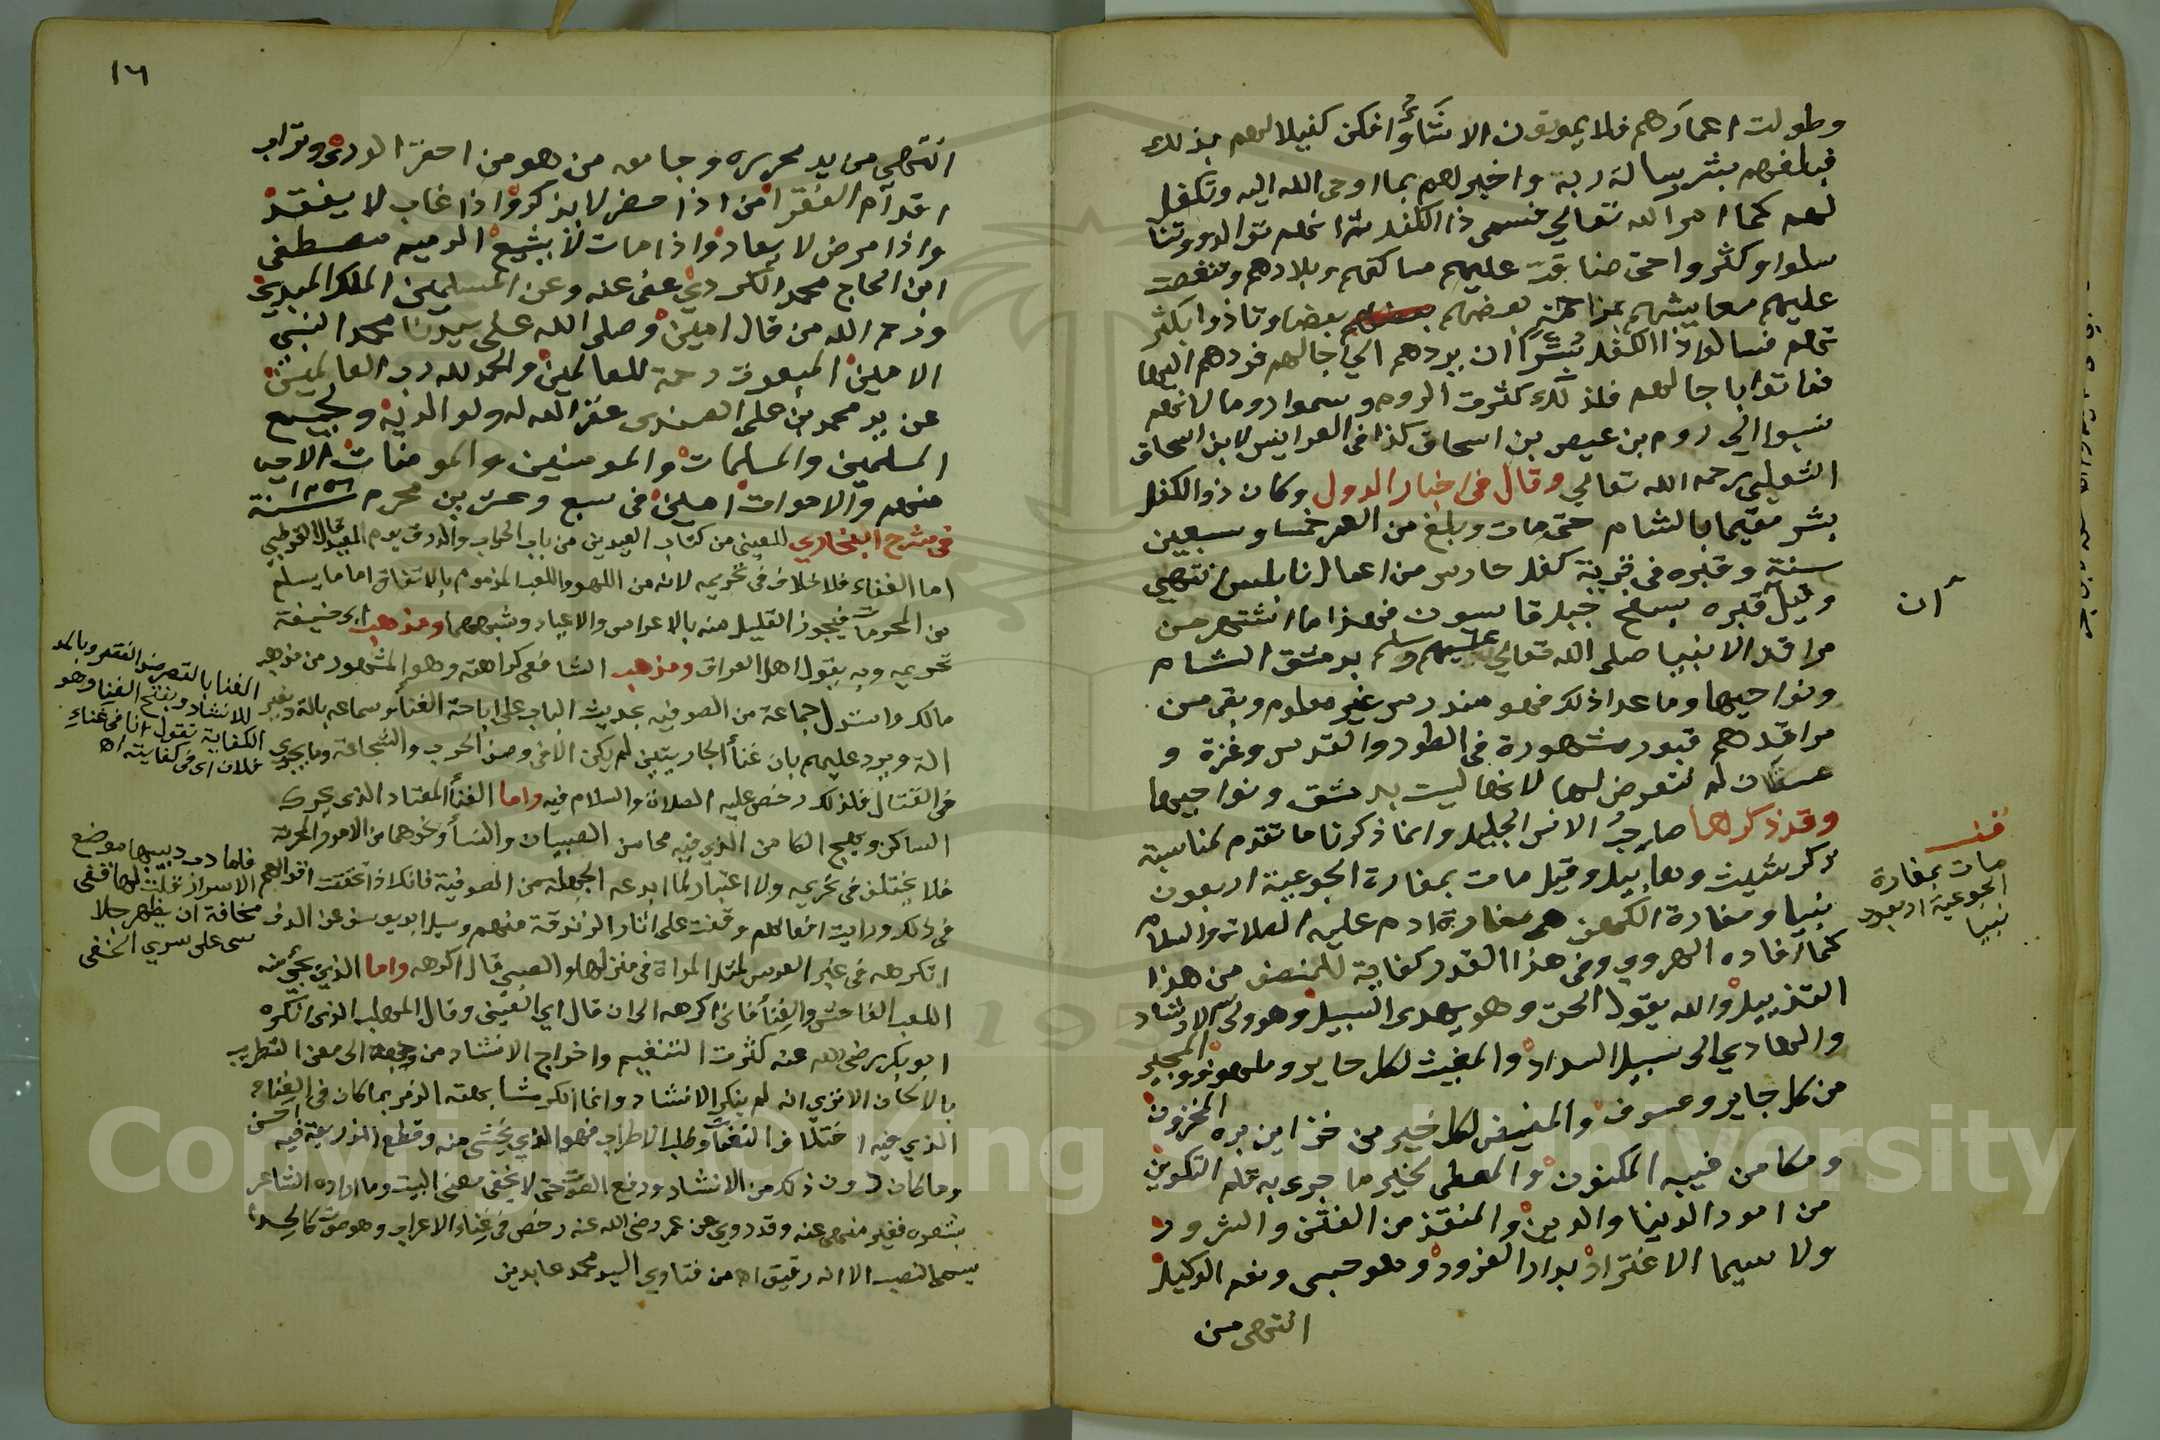 وطولت اعمارهم فلا يموتون الا نتأوا فكن كفيلا لهم بذلك
فبلغهم بشر رسالة ربه واخبرهم بما اوحى الله اليه وتكفل
لهم كما امر الله تعالي فسمى ذا الكفل ثم انهم توالدوا وتنا
سلوا وكثروا حتى ضاقت عليهم مساكنهم وبلادهم وتنغصت
عليهم معايشهم بمزاحمة بعضهم بعضا وتاذوا بكثر
تهم فسالوا ذا الكفل بشرًا ان يردهم الي آجالهم فردهم اليها
فماتوا باجالهم فلذلك كثرت الروم وسموا روما لانهم
نسبوا الي روم بن عيص بن اسحاق كذا في العرايس لابن اسحاق
الثعلبي رحمه الله تعالي وقال في اخبار الدول وكان ذو الكفل
بشر مقيما بالشام حتى مات وبلغ من العمر خمسا وسبعين
سنة وقبره في قرية كفل حارس من اعمال نابلس انتهي
وقيل قبره بسفح جبل قاسون في هذا ما اشتهر من
مراقد الانبيا صلى الله تعالي عليهم وسلم بدمشق الشام
ونواحيها وما عدا ذلك فهو مندرس غير معلوم وبقي من
مراقدهم قبور مشهورة في الطور والقدس وغزة و
عسقلان لم نتعرض لها لانها ليست بدمشق ونواحيها
وقد ذكرها صاحب الانس الجليل وانما ذكرنا ما تقدم لمناسبة
ذكر شيث وهابيل وقيل مات بمغارة الجوعية اربعون
نبيا ومغارة الكهف هي مغارة ادم عليه الصلاة والسلام
كما افاده الهروي وفي هذا القدر كفاية للمنصف من هذا
التذييل والله يقول الحق وهو يهدي السبيل وهو ولي الارشاد
والهادي الى سبيل السداد والمغيث لكل حاير وملهوف والمجير
من كل جاير وعسوف والمفيض لكل خير من خزاين بره المخزون
ومكامن غيبه المكنون والمعطي لخير ما جرى به قلم التكوين
من امور الدنيا والدين والمنقذ من الفتن والشرور
ولا سيما الاغترار بدار الغرور وهو حسبي ونعم الوكيل
انتهى من
أن
قف
مات بمغارة
الجوعية اربعون
نبيا
١٦
انتهي من يد محرره وجامعه من هو من احقر الورى وتراب
اقدام الفقرا من اذا حضر لا يذكر واذا غاب لا يفقد
واذا مرض لا يعاد واذا مات لا يشيع الرميم مصطفى
ابن الحاج محمد الكردي عفي عنه وعن المسلمين الملك المبدي
ورحم الله من قال امين وصلى الله على سيدنا محمد النبي
الامين المبعوث رحمة للعالمين والحمد لله رب العالمين
عن يد محمد بن علي الهندى غفر الله له ولوالديه ولجميع
المسلمين والمسلمات والمومنين والمومنات الاحيا
منهم والاموات امين في سبع وعشرين محرم سنة ١٢٥٦
في شرح البخاري للعيني من كتاب العيدين من باب الحراب والدرق يوم العيد قال القرطبي
اما الغناء فلا خلاف في تحريمه لانه من اللهو واللعب المذموم بالاتفاق اما ما يسلم
من المحرمات فيجوز القليل منه بالاعراس والاعياد وشبههما ومذهب ابي حنيفة
تحريمه وبه يقول اهل العراق ومذهب الشافعي كراهته وهو المشهور من مذهب
مالك واستدل جماعة من الصوفيه بحديث الباب على اباحة الغنا وسماعه بالة وبغير
الة ويرد عليهم بان غنأ الجاريتين لم يكن الا في وصف الحرب والشجاعة وما يجري
في القتال فلذلك رخص عليه الصلاة والسلام فيه واما الغنأ المعتاد الذي يحرك
الساكن ويهيج الكامن الذي فيه محاسن الصبيان والنسأ ونحوهما من الامور المحرمة
فلا يختلف في تحريمه ولا اعتبار لما ابدعه الجهلة من الصوفية فانك اذا تحققت اقوالهم
في ذلك ورايت افعالهم وقفت على اثار الزندقة منهم وسيل ابو يوسف عن الدف
اتكرهه في غير العرس لمثل المراة في منزلها والصبي قال اكرهه واما الذي يجئ منه
اللعب الفاحش والغنأ فاني اكرهه الى ان قال اي العيني وقال المهلب الذي انكره
ابو بكر رضى الله عنه كثرت التنغيم واخراج الانشاد من وجهه الى معنى التطريب
بالالحان الا ترى انه لم ينكر الانشاد وانما انكر مشابهته الزمر بما كان في الغناء
الذي فيه اختلاف النغمات وطلب الاطراب فهو الذي يخشى منه وقطع الذريعة فيه احسن
وما كان دون ذلك من الانشاد ورفع الصوت حتى لا يخفى معنى البيت وما اراده الشاعر
بشعره فغير منهي عنه وقد روي عن عمر رضى الله عنه رخص في غناء الاعراب وهو صوت كالحداء
يسمى النصب الا انه رقيق اه من فتاوي السيد محمد عابدين
الغنا بالقصر ضد الفقر وبالمد
للانشاد وبفتح الغينا وهو
الكفاية تقول انا في غناء
فلان اى في كفايته اه
فلما دب دبيبها موضع
الاسرار قلت لها قفي
مخافة ان يظهر جلا
سى على سري الخفي